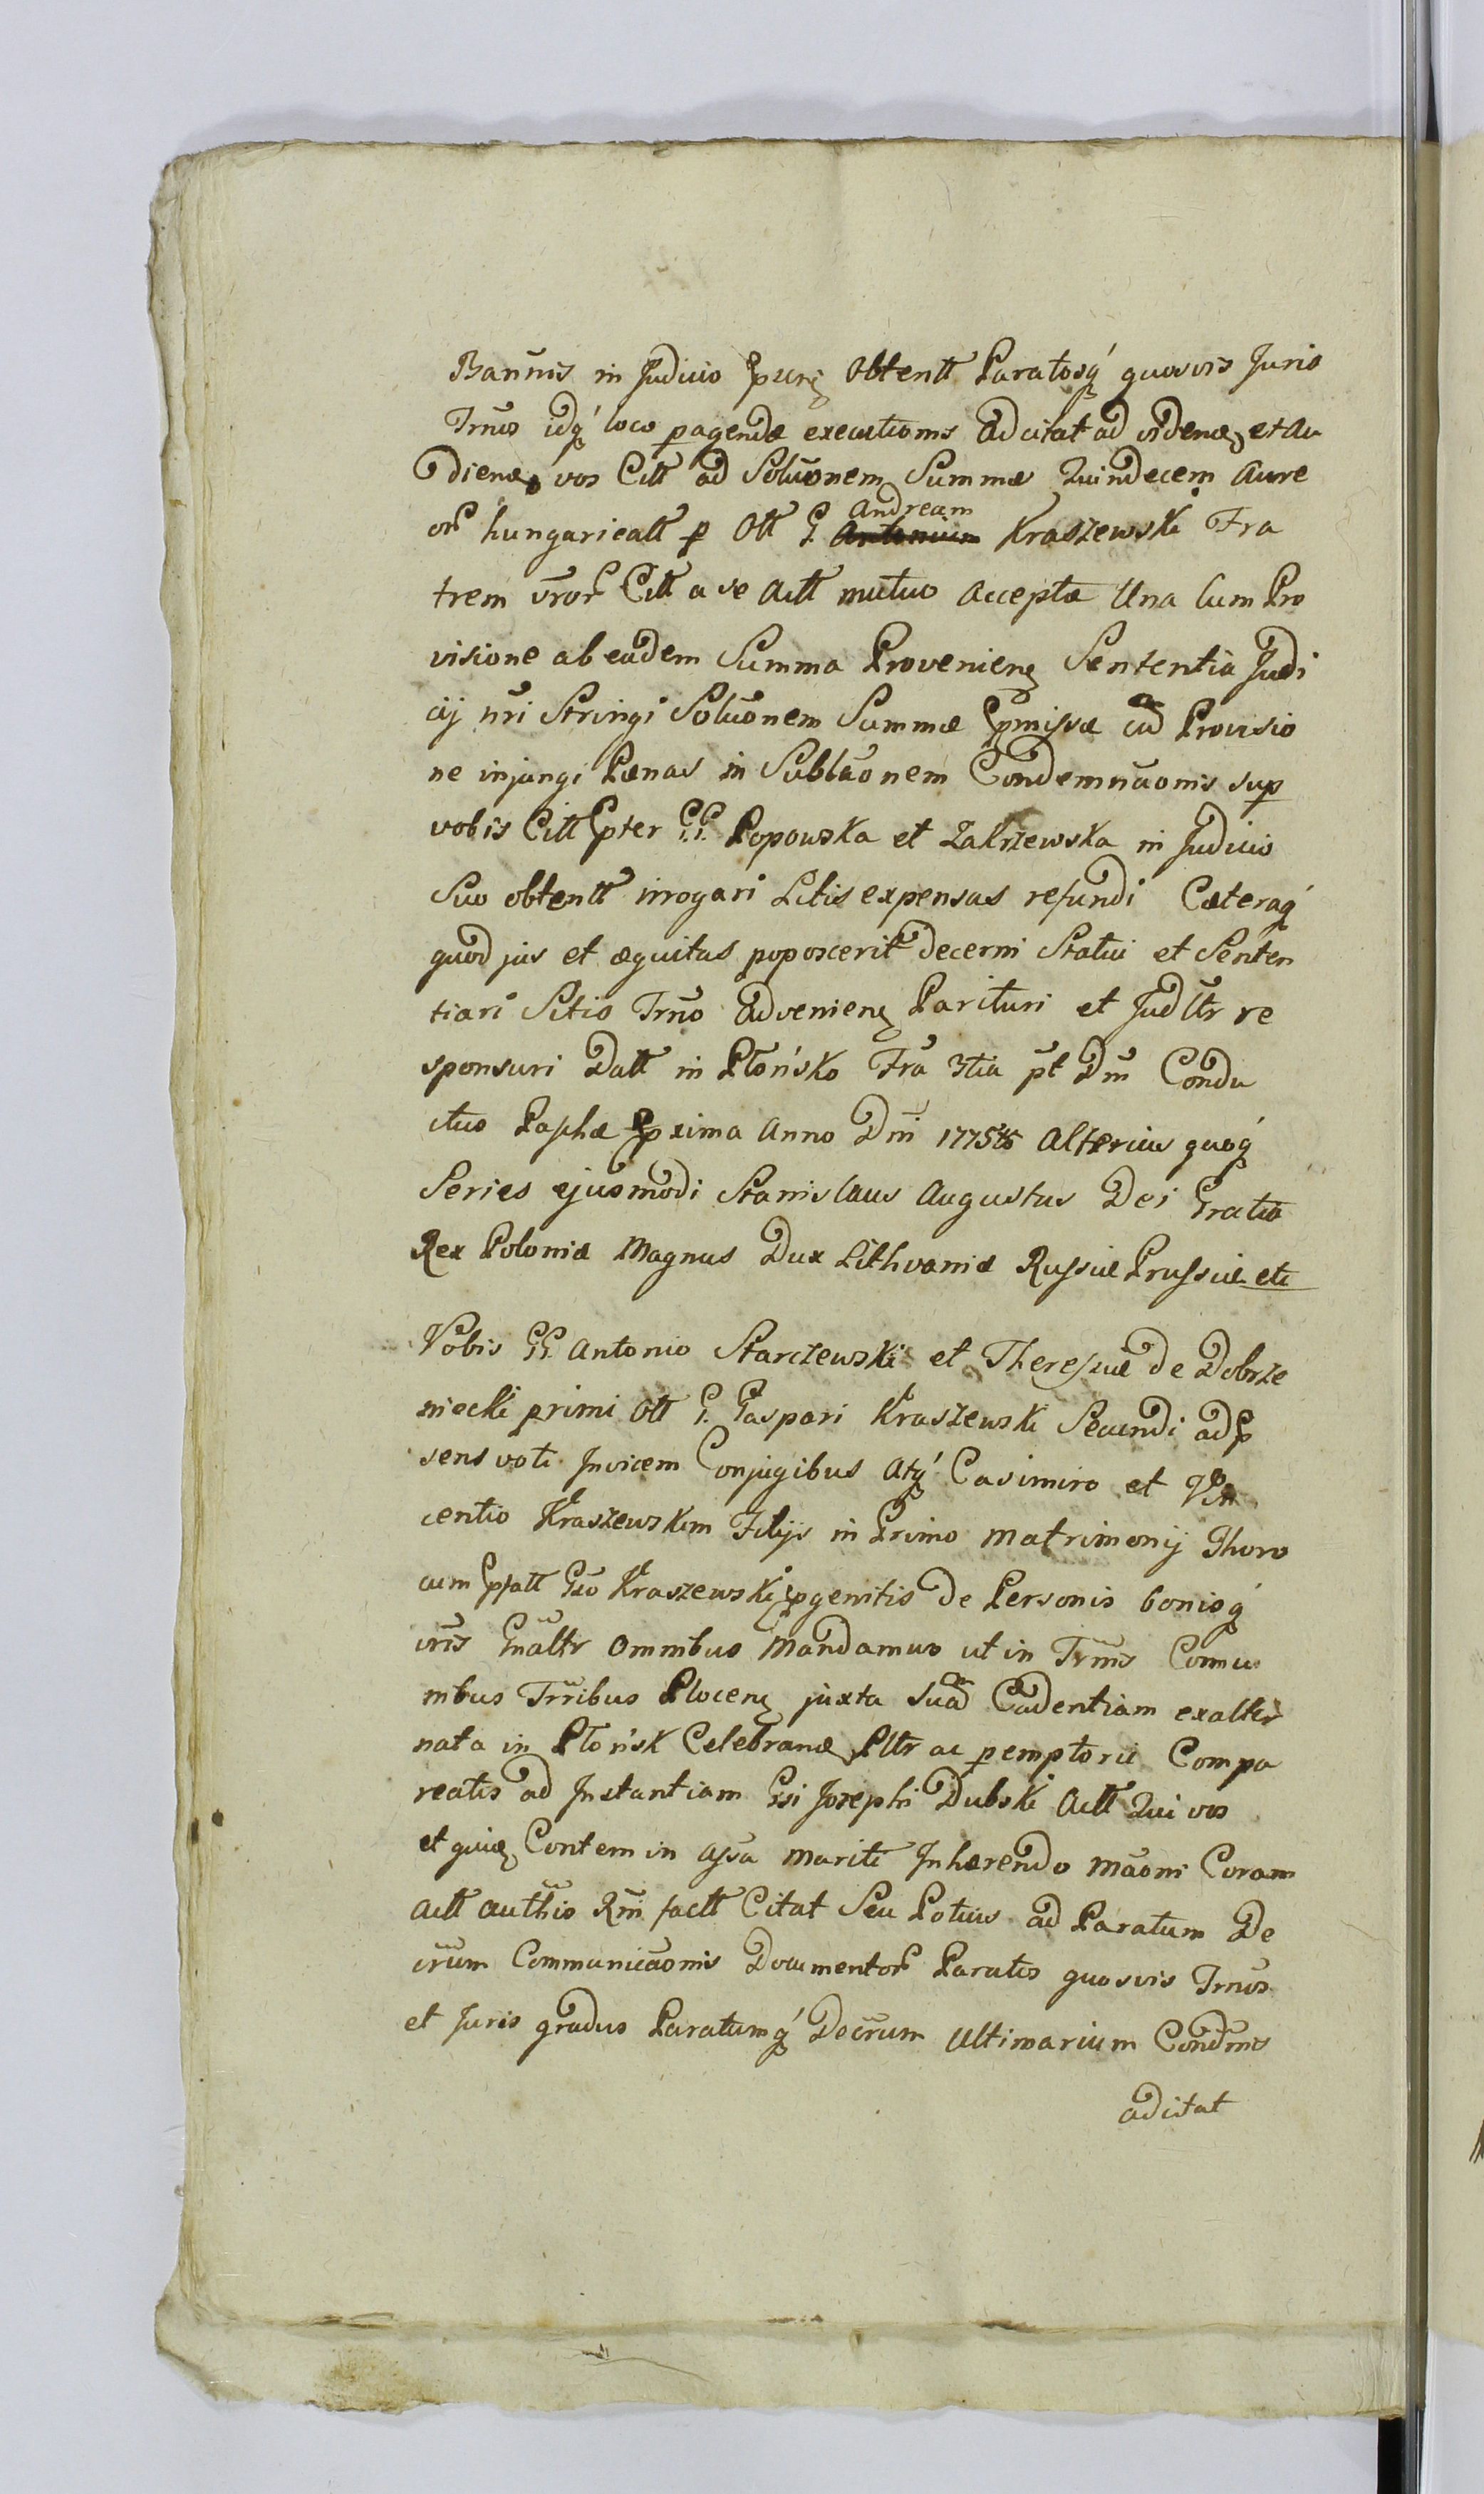 Bannis in Judicio pntj Obtentt Paratosq́ quosvis Juris
Trnos idq́ loco peragendæ executionis Adcitat ad vidend, et Au
diend, vos Citt ad Soluõnem Summæ Quindecem Aure
or hungaricall p Ott G. Antonium Andream Kraszewski Fra
trem vror Citt a se Actt mutuo Acceptæ Una Cum Pro
visione ab eadem Summa Provenien Sententia Judi
cij nri Stringi Soluõnem Summæ pmissæ cũ Provisio
ne injungi Pænas in Sublaõnem Condemnaõnis sup
vobis Citt pter GG. Popowska et Zakrzewska in Judicio
Suo obtentt irrogari Litis expensas refundi Cæteraq́
quod jus et æquitas poposcerit decerni Statui et Senten
tiari Sitis Trno Advenien Parituri et Judltr re
sponsuri Datt in Płońsko Fra 3tia pt Dm̃ Condu
ctus Paschæ pxima Anno Dni 1775to Alterius quoq́
Series ejusmodi Stanislaus Augustus Dei Gratia
Rex Poloniæ Magnus Dux Lithvaniæ Russiæ Prussiæ etc
Vobis GG. Antonio Starczewski et Theresiæ de Dobrze
niecki primi Ott G. Gaspari Kraszewski Secundi ad p
sens voti Invicem Conjugibus Atq́ Casimiro et Vin
centio Kraszewskim Filijs in Primo Matrimonij Thoro
cum pfatt Gso Kraszewski pgenitis de Personis bonisq́
vris Gnaltr Omnibus Mandamus ut in Trnis Commu
nibus Trribus Plocen juxta suã Cadentiam exalter
nata in Płońsk Celebrand, Pltr ac peremptorie Compa
reatis ad Instantiam Gsi Josephi Dubski Actt Qui vos
et quid, Contem in Assa mariti Inhærendo Maõni Coram
Actt Authis Rni factt Citat Seu Potius ad Paratum De
crum Communicaõnis Documentor Paratos quosvis Trnos
et Juris gradus Paratumq́ Decrum Ultimarium Condmis
adcitat